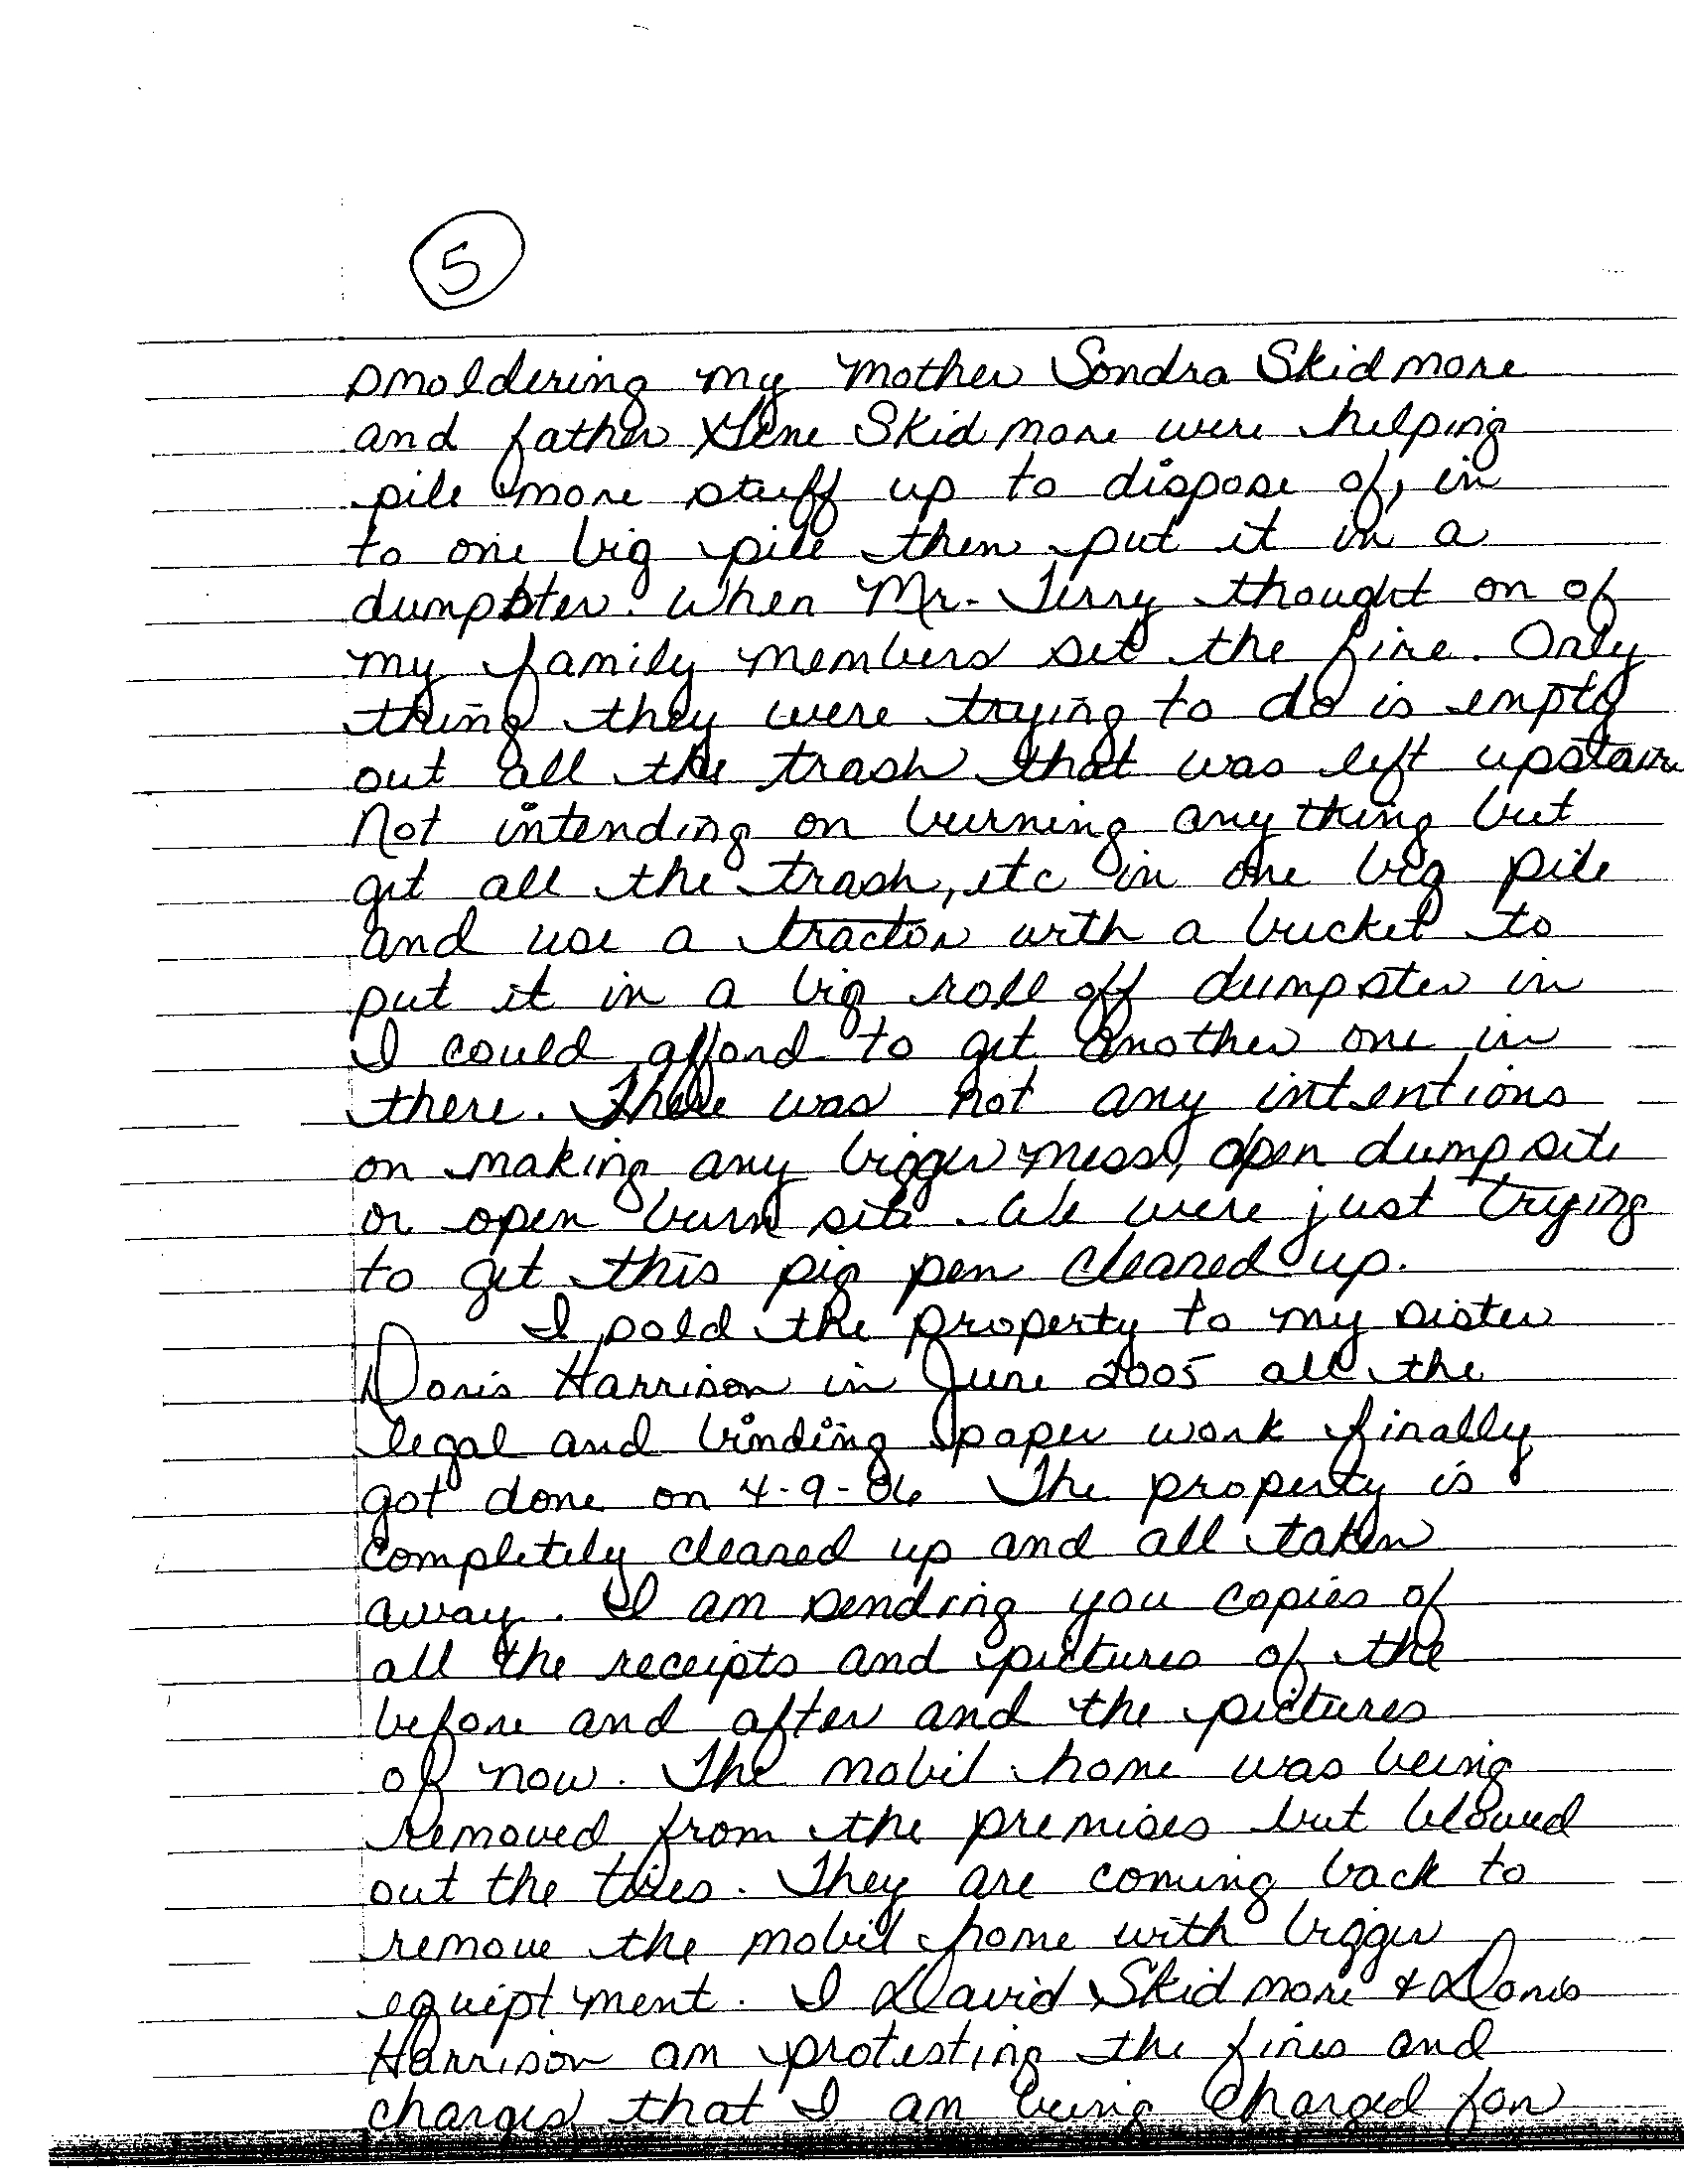 5
smoldering my mother Sondra Skidmore
and father Gene Skidmore were helping
pile more stuff up to dispose of, in
to one big pile then put it in a
dumpster. When Mr. Terry thought on of
my family members set the fire. Only
thing they were trying to do is empty
out all the trash that was left upstairs
Not intending on burning anything but
get all the trash, etc in one big pile
and use a tractor with a bucket to
put it in a big roll off dumpster in
I could afford to get another one in
there. There was not any intentions
on making any bigger mess, open dump site
or open burn site. We were just trying
to get this pig pen cleaned up.
I sold the property to my sister
Doris Harrison in June 2005 all the
legal and binding paper work finally
got done on 4-9-06 The property is
completely cleaned up and all taken
away. I am sending you copies of
all the receipts and pictures of the
before and after and the pictures
of now. The mobil home was being
removed from the premises but blowed
out the tires. They are coming back to
remove the mobil home with bigger
equiptment. I David Skidmore & Doris
Harrison am protesting the fines and
charges that I am being charged for